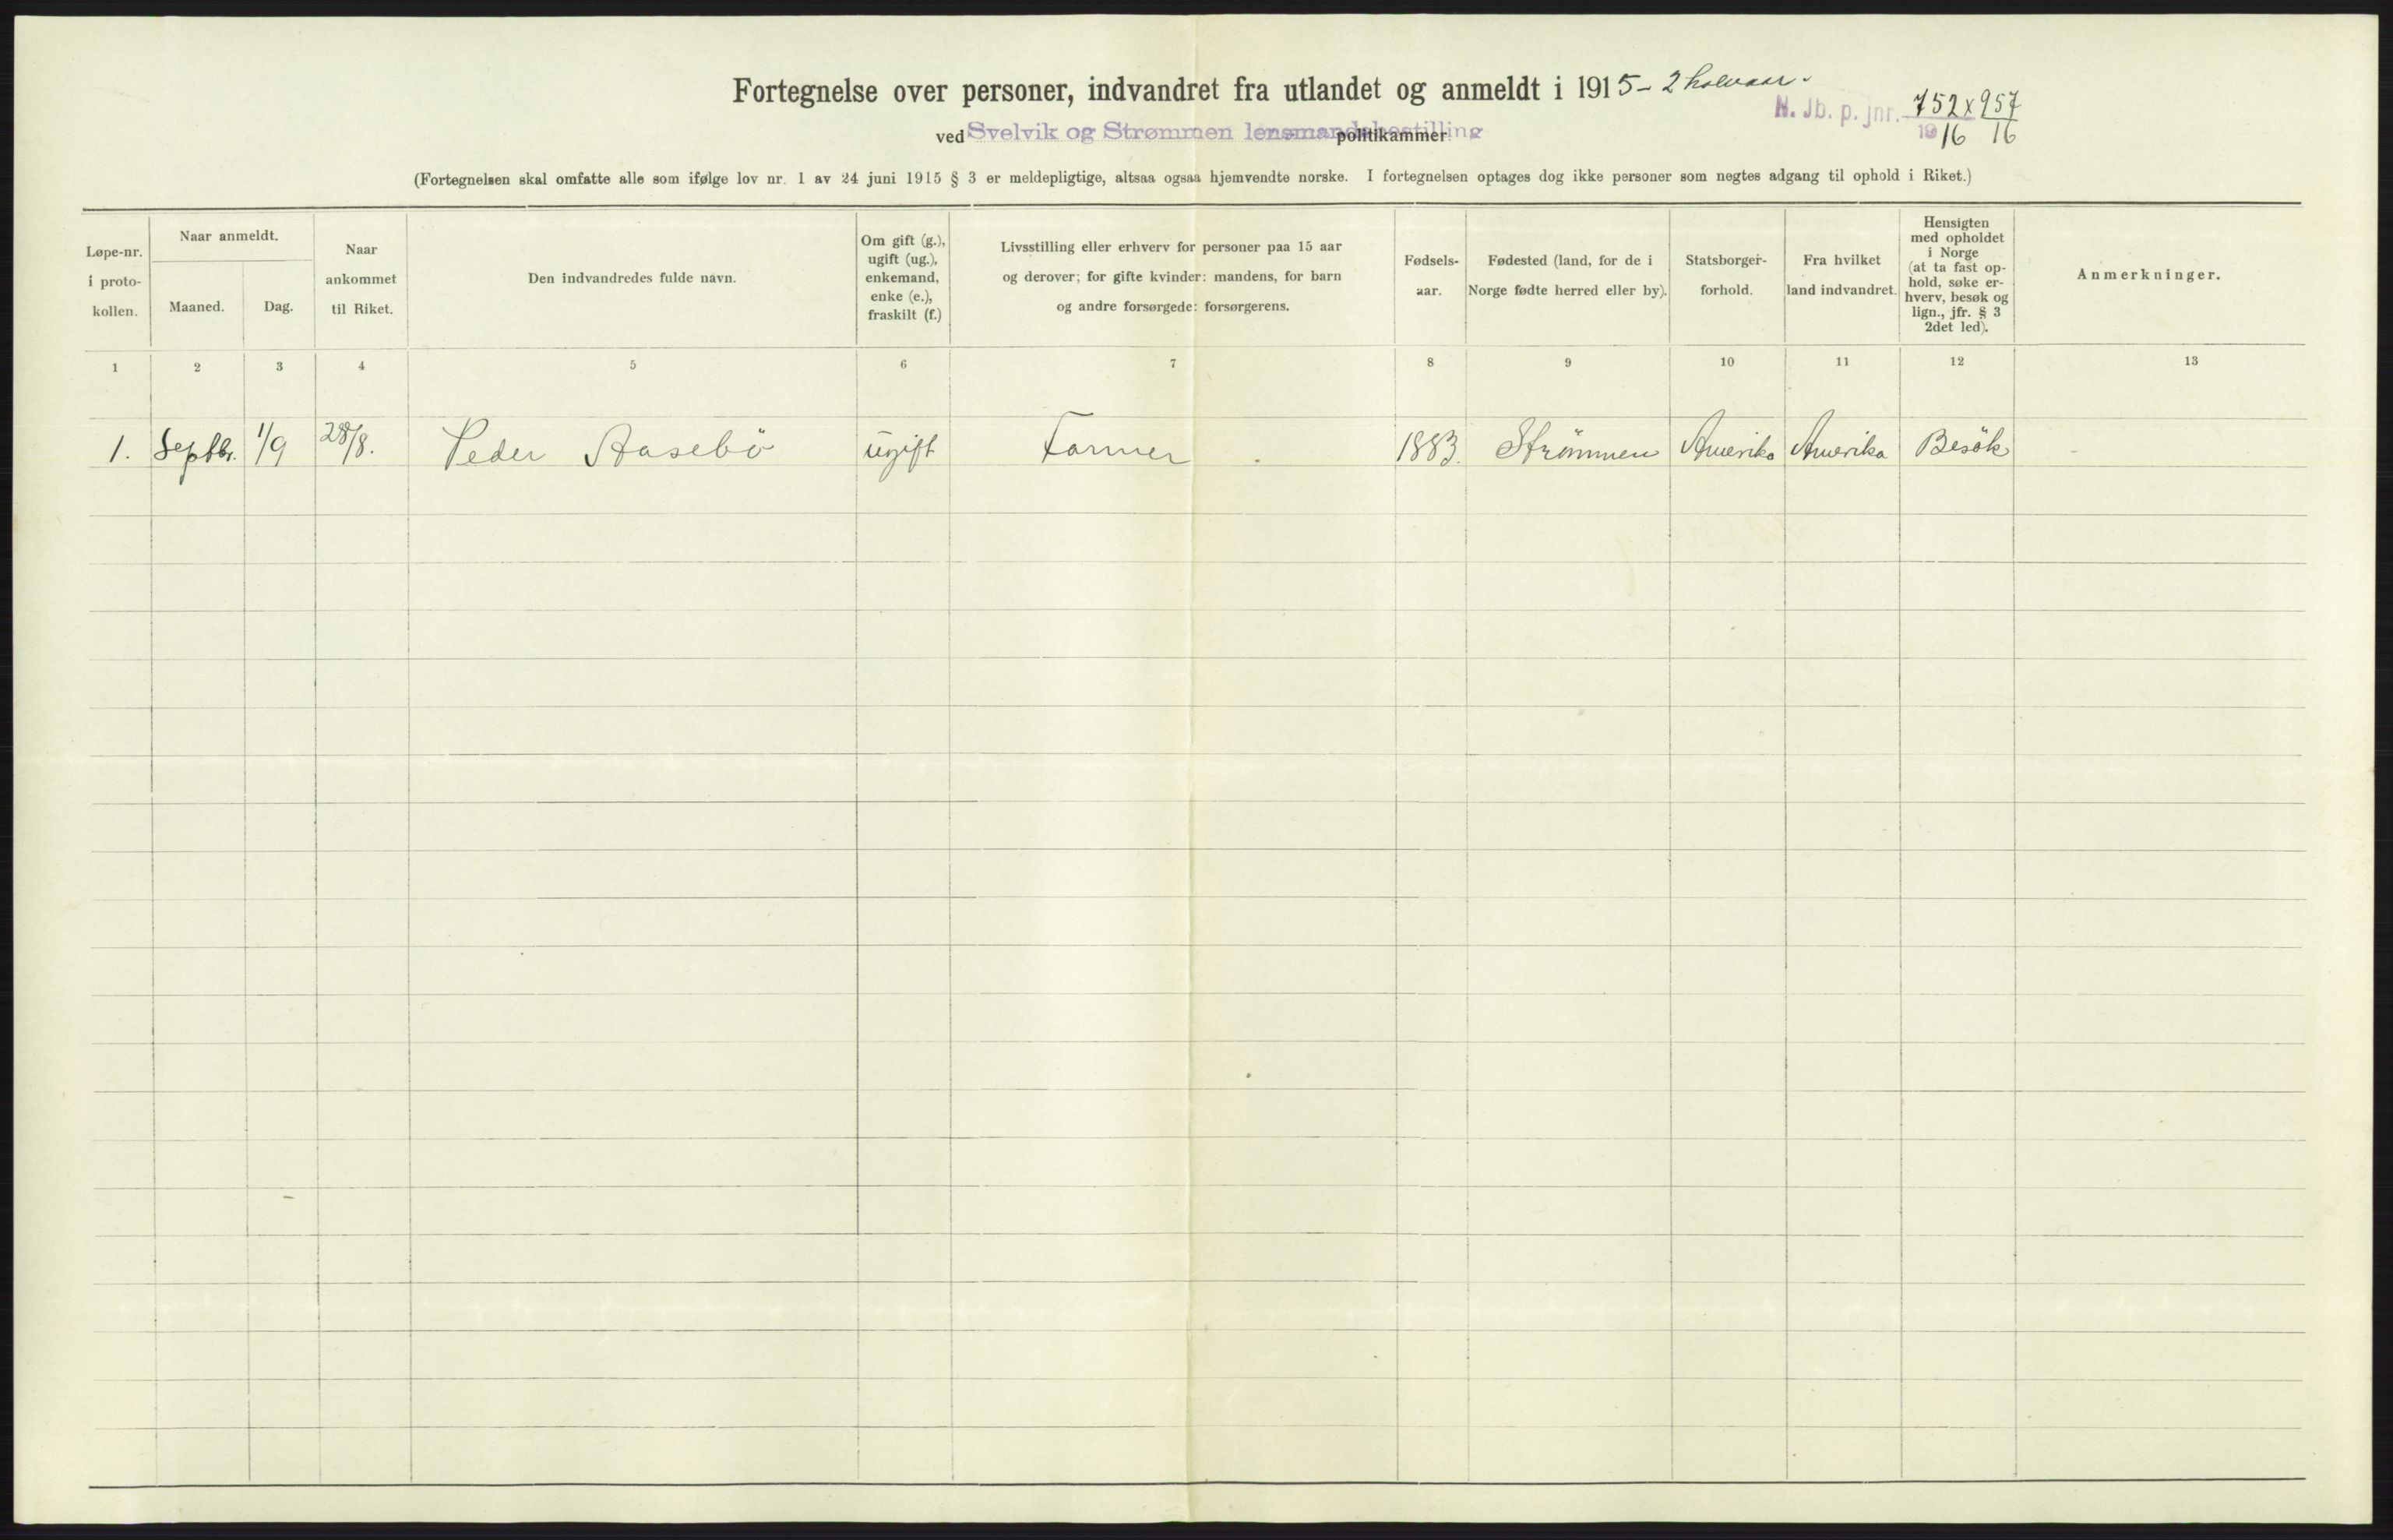 Fortegnelse over personer, indvandret fra utlandet og anmeldt i 1915 - 2 halvaar.
N. Jb. p. jnr. 752 x 957
1916 16
ved Svelvik og Strømmen lensmandsbestilling politikammer
(Fortegnelsen skal omfatte alle som ifølge lov nr. 1 av 24 juni 1915 § 3 er meldepligtige, altsaa ogsaa hjemvendte norske. I fortegnelsen optages dog ikke personer som negtes adgang til ophold i Riket.)
Løpe-nr.
i proto-
kollen.
Naar anmeldt.
Maaned.
Dag.
Naar
ankommet
til Riket.
Den indvandredes fulde navn.
Om gift (g.),
ugift (ug.),
enkemand,
enke (e.),
fraskilt (f.)
Livsstilling eller erhverv for personer paa 15 aar
og derover; for gifte kvinder: mandens, for barn
og andre forsørgede: forsørgerens.
Fødsels-
aar.
Fødested (land, for de i
Norge fødte herred eller by).
Statsborger-
forhold.
Fra hvilket
land indvandret.
Hensigten
med opholdet
i Norge
(at ta fast op-
hold, søke er-
hverv, besøk og
lign., jfr. § 3
2det led).
Anmerkninger.
1 2 3 4 5 6 7 8 9 10 11 12 13
1. Septbr. 1/9 28/8. Peder Aasebö ugift Farmer 1883. Strömmen Amerika Amerika Besök